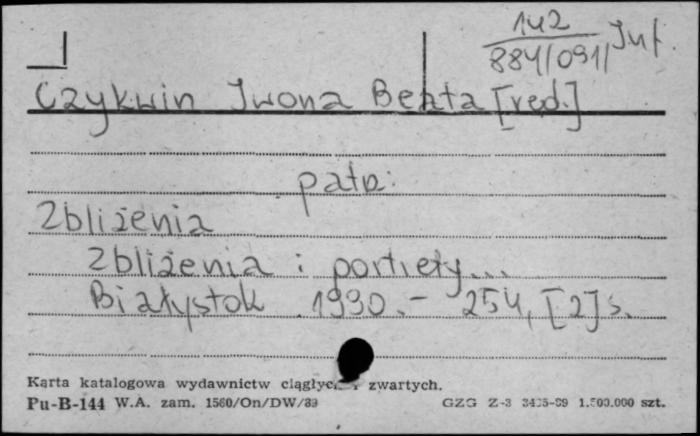 142
884/091/ Jut.
Czykwin Iwona Beata [red.]
patrz:
Zbliżenia
Zbliżenia i portrety...
Białystok 1990. - 254, [2] s.
Karta katalogowa wydawnictw ciągłych i zwartych.
Pu-B-144 W.A. zam. 1560/On/DW/89 GZG Z-3 3435-89 1.500.000 szt.